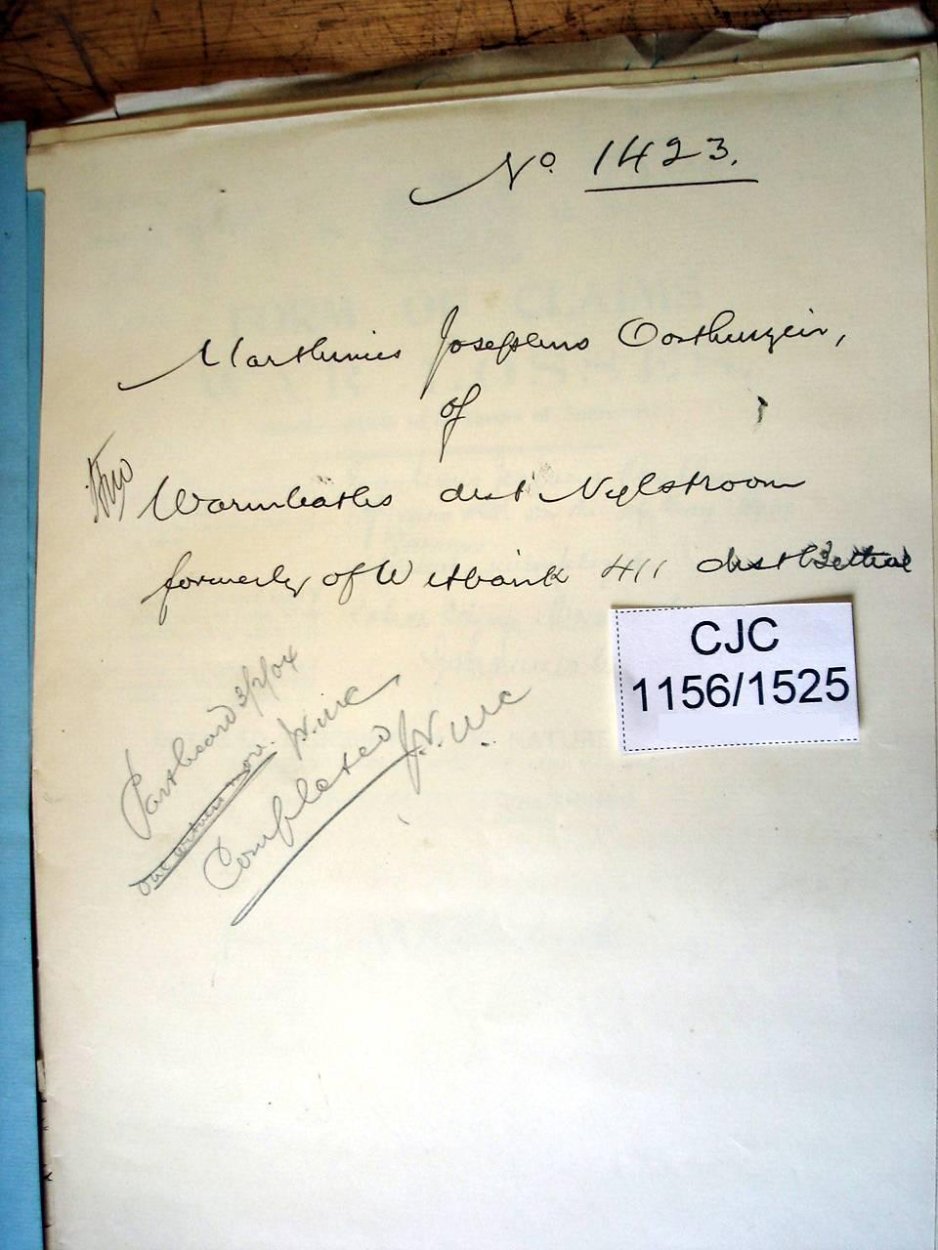 No. 1423.
Marthinus Josephus Oosthuyzen,
of
Warmbaths dist Nylstroom
formerly of Witbank 411 dist Bethal
CJC
1156/1525
Part heard 3/2/04
Completed
FORM OF CLAIMS